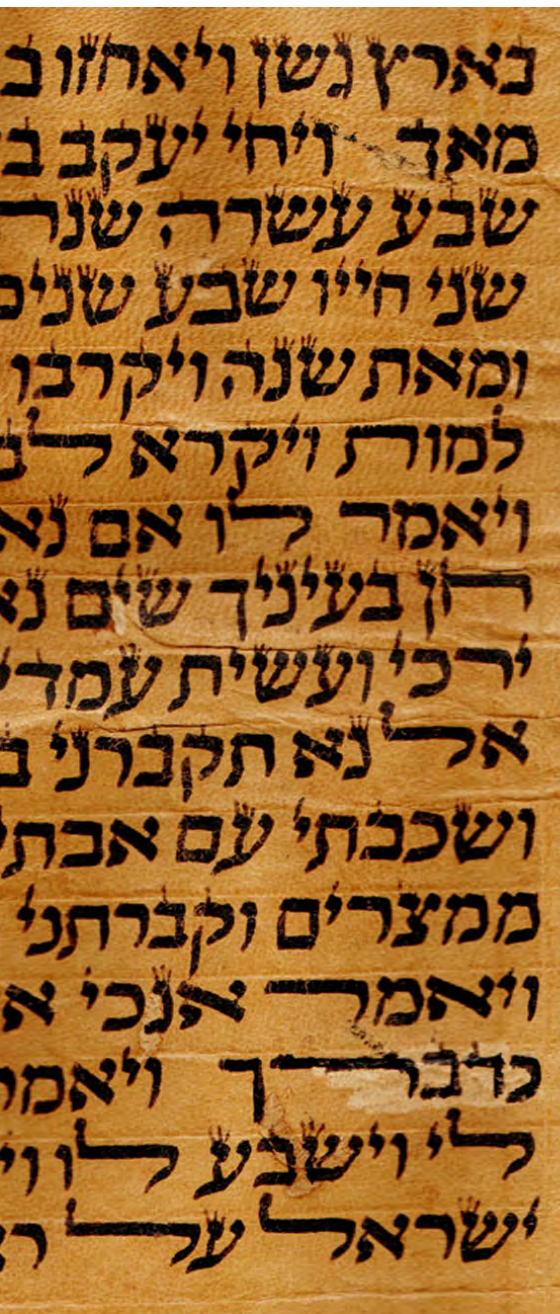 בארץ גשן ויאחזו ב
מאד ויחי יעקב ב
שבע עשרה שנה
שני חייו שבע שנים
ומאת שנה ויקרבו
למות ויקרא לב
ויאמר לו אם נא
חן בעיניך שים נא
ירכי ועשית עמדי
אל נא תקברני ב
ושכבתי עם אבתי
ממצרים וקברתני
ויאמר אנכי א
כדברך ויאמר
לי וישבע לו וי
ישראל על רא